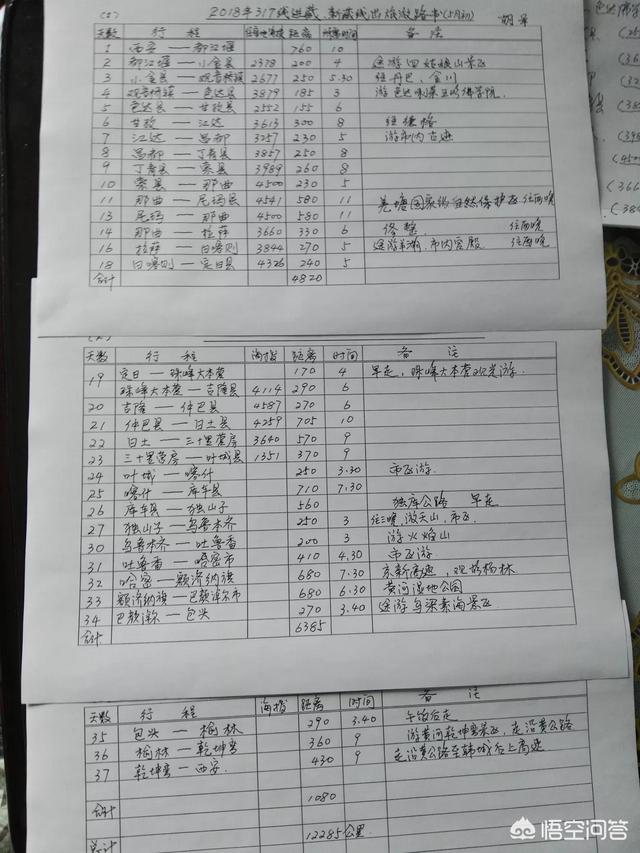 (1) 2018年317线进藏、新藏线出旅游路书(5月初) 胡
天数 行 程 海拔 距离 时间 备 注
1 西安 — 都江堰 760 10
2 都江堰 — 小金县 2378 200 4 途游四姑娘山景区
3 小金县 — 观音桥镇 2677 250 5.30 经丹巴、金川
4 观音桥镇 — 色达县 3879 185 3 游色达喇荣五明佛学院
5 色达县 — 甘孜县 2552 155 6
6 甘孜 — 江达 3613 300 8 经德格
7 江达 — 昌都 3257 230 5 游市内古迹
8 昌都 — 丁青县 3857 250 8
9 丁青县 — 索县 3989 260 8
10 索县 — 那曲 4500 230 5
11 那曲 — 尼玛县 4541 580 11 羌塘国家级自然保护区 住两晚
13 尼玛 — 那曲 4500 580 11
14 那曲 — 拉萨 3660 330 6 休整 住两晚
16 拉萨 — 日喀则 3844 270 5 途游羊湖、市内宫殿 住两晚
18 日喀则 — 定日县 4326 240 5
合计 4820
(2)
天数 行 程 海拔 距离 时间 备 注
19 定日 — 珠峰大本营 170 4 早走,珠峰大本营观光游.
珠峰大本营 — 吉隆县 4114 290 6
20 吉隆 — 仲巴县 4587 270 6
21 仲巴县 — 日土县 4259 705 10
22 日土 — 三十里营房 3640 570 9
23 三十里营房 — 叶城县 1351 370 9
24 叶城 — 喀什 250 3.30 市区游
25 喀什 — 库车县 710 7.30
26 库车县 — 独山子 560 独库公路 早走
27 独山子 — 乌鲁木齐 250 3 住三晚,游天山,市区.
30 乌鲁木齐 — 吐鲁番 200 3 游火焰山
31 吐鲁番 — 哈密市 410 4.30 市区游
32 哈密 — 额济纳旗 680 7.30 京新高速,观胡杨林
33 额济纳旗 — 巴彦淖尔市 680 6.30 黄河湿地公园
34 巴彦淖尔 — 包头 270 3.40 途游乌梁素海景区
合计 6385
天数 行 程 海拔 距离 时间 备 注
35 包头 — 榆林 290 3.40 午饭后走
36 榆林 — 乾坤湾 360 9 游黄河乾坤湾景区,走沿黄公路
37 乾坤湾 — 西安. 430 9 走沿黄公路至韩城后上高速
合计 1080
总计 12285公里.
悟空问答